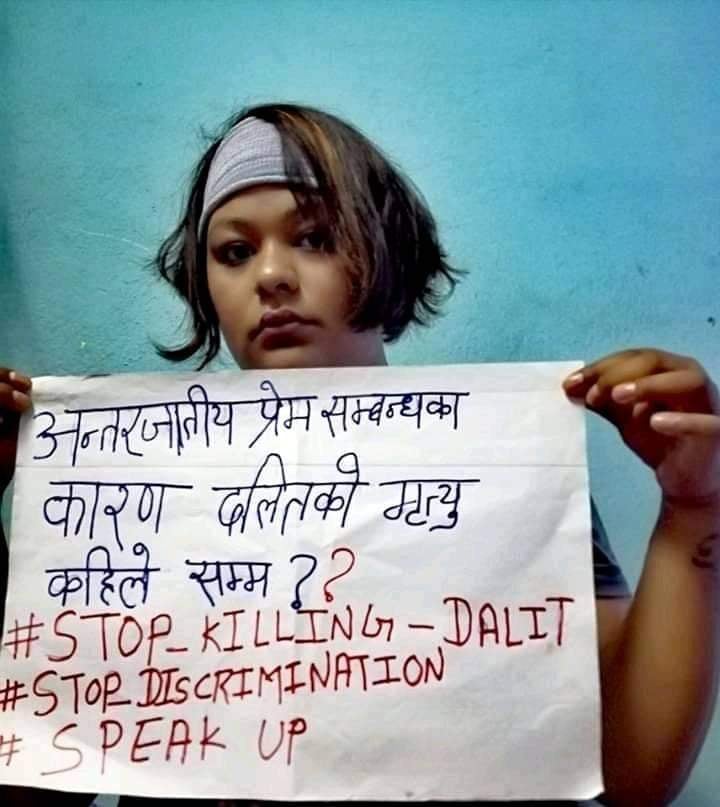 अन्तरजातीय प्रेम सम्बन्धका
कारण दलितको मृत्यु
कहिले सम्म ??
#STOP_KILLING-DALIT
#STOP_DISCRIMINATION
# SPEAK UP